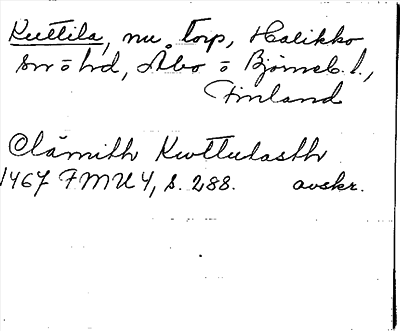 Kuttila, nu torp, Halikko
sn o hd, Åbo o Björneb. l.,
Finland
Clämith Kwttulasth
1467 FMU 4, s. 288. avskr.